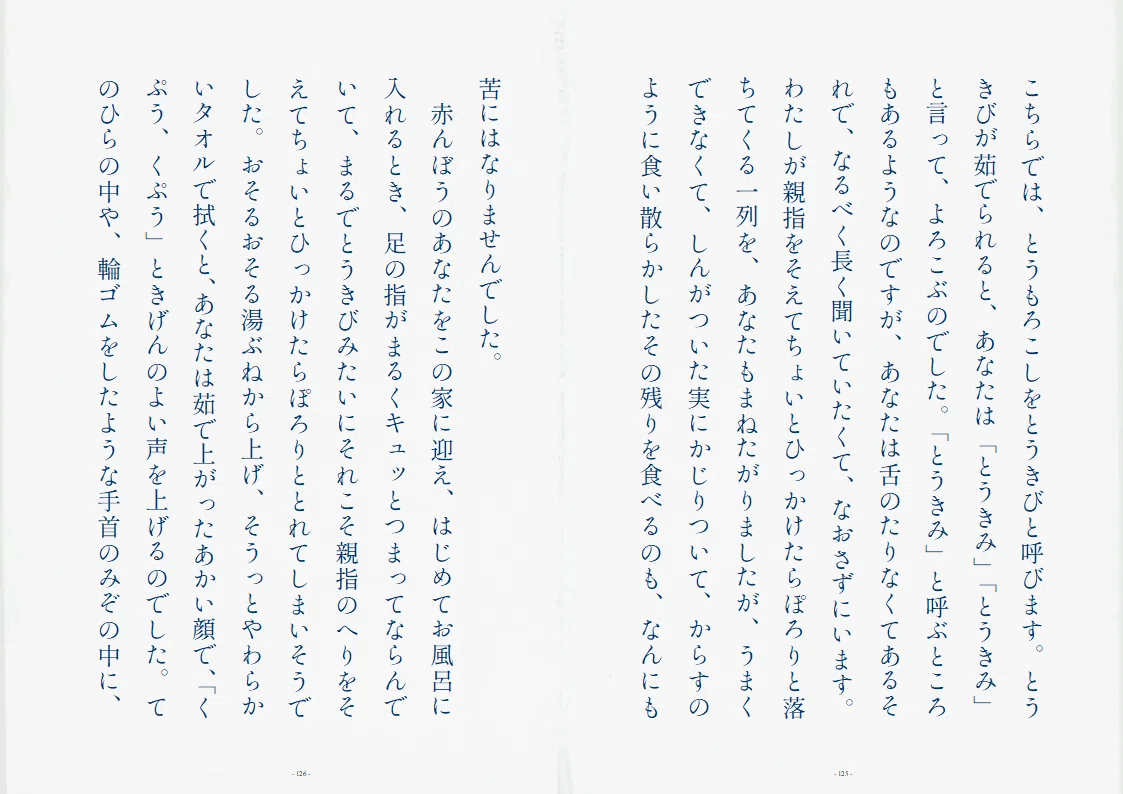 こちらでは、とうもろこしをとうきびと呼びます。とう
きびが茹でられると、あなたは「とうきみ」「とうきみ」
と言って、よろこぶのでした。「とうきみ」と呼ぶところ
もあるようなのですが、あなたは舌のたりなくてあるそ
れで、なるべく長く聞いていたくて、なおさずにいます。
わたしが親指をそえてちょいとひっかけたらぽろりと落
ちてくる一列を、あなたもまねたがりましたが、うまく
できなくて、しんがついた実にかじりついて、からすの
ように食い散らかしたその残りを食べるのも、なんにも
- 125 -
苦にはなりませんでした。
赤んぼうのあなたをこの家に迎え、はじめてお風呂に
入れるとき、足の指がまるくキュッとつまってならんで
いて、まるでとうきびみたいにそれこそ親指のへりをそ
えてちょいとひっかけたらぽろりととれてしまいそうで
した。おそるおそる湯ぶねから上げ、そうっとやわらか
いタオルで拭くと、あなたは茹で上がったあかい顔で、「く
ぷう、くぷう」ときげんのよい声を上げるのでした。て
のひらの中や、輪ゴムをしたような手首のみぞの中に、
- 126 -